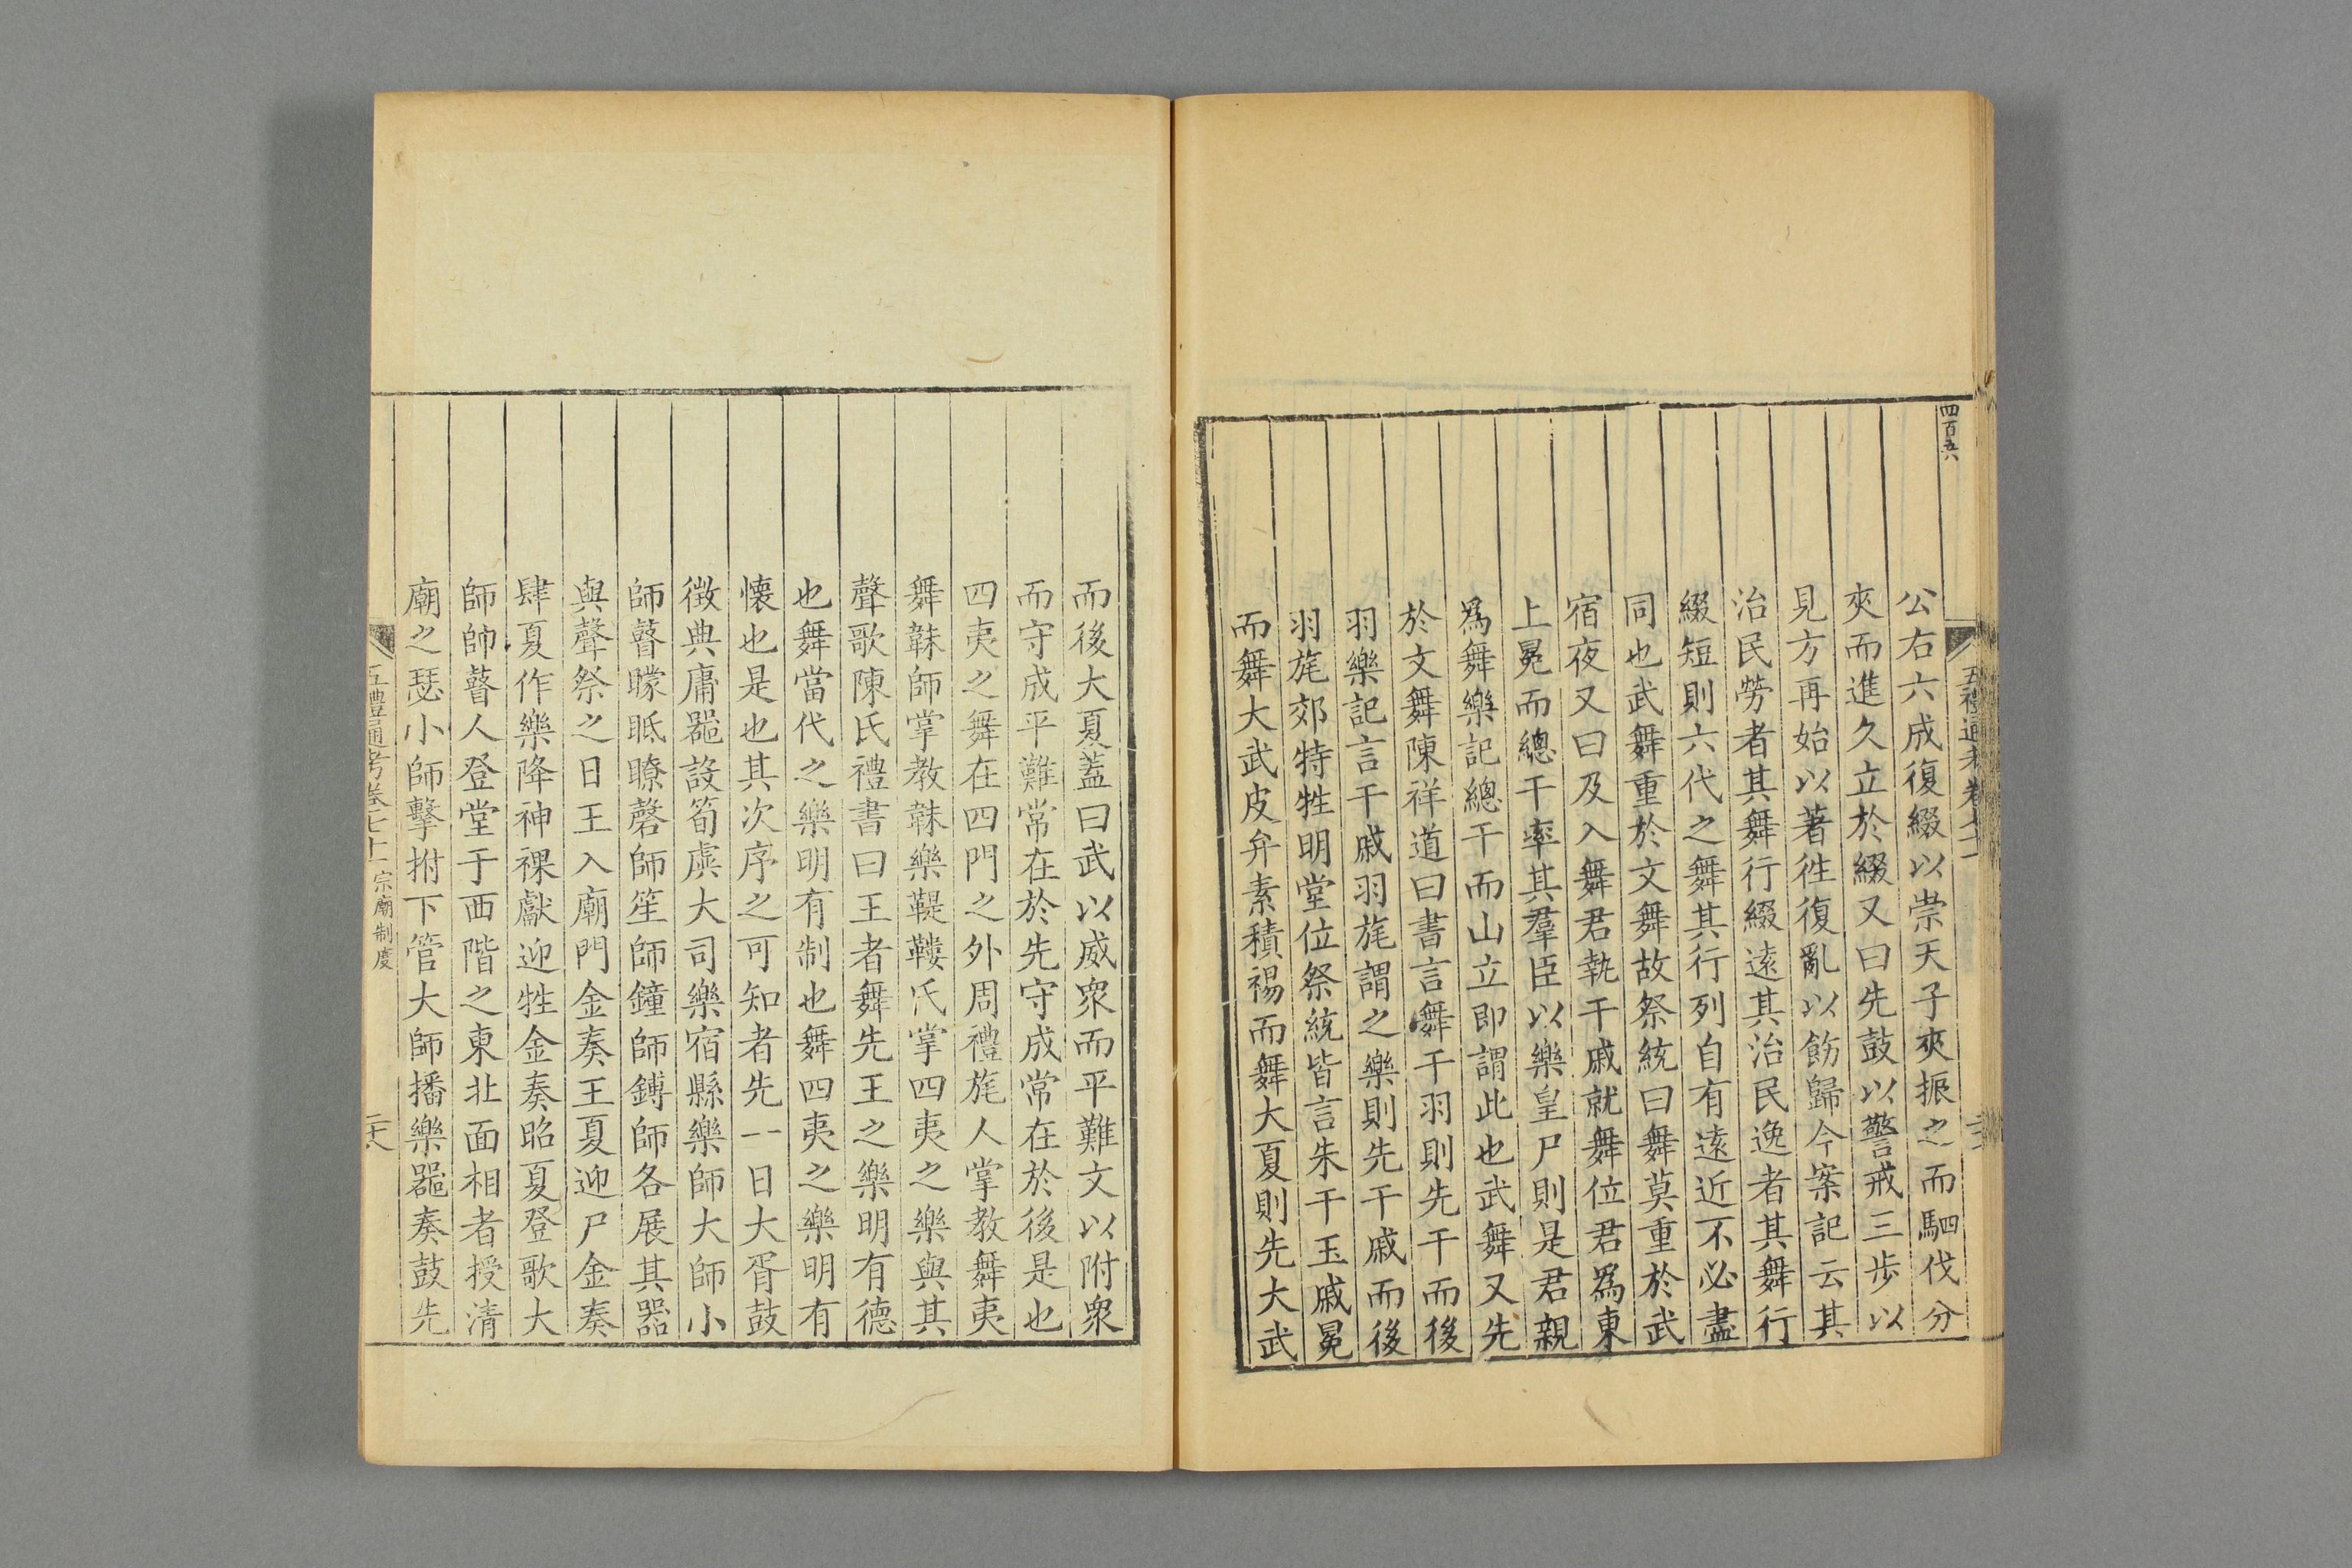 四百五六
五禮通考卷七十一
公右六成復綴以崇天子夾振之而駟伐分
夾而進久立於綴又曰先鼓以警戒三步以
見方再始以著徃復亂以飭歸今案記云其
治民勞者其舞行綴逺其治民逸者其舞行
綴短則六代之舞其行列自有逺近不必盡
同也武舞重於文舞故祭統曰舞莫重於武
宿夜又曰及入舞君執干戚就舞位君爲東
上冕而總干率其羣臣以樂皇尸則是君親
爲舞樂記總干而山立即謂此也武舞又先
於文舞陳祥道曰書言舞干羽則先干而後
羽樂記言干戚羽旄謂之樂則先干戚而後
羽旄郊特牲明堂位祭統皆言朱干玉戚冕
而舞大武皮弁素積裼而舞大夏則先大武
而後大夏蓋曰武以威衆而平難文以附衆
而守成平難常在於先守成常在於後是也
四夷之舞在四門之外周禮旄人掌教舞夷
舞韎師掌教韎樂鞮鞻氏掌四夷之樂與其
聲歌陳氏禮書曰王者舞先王之樂明有德
也舞當代之樂明有制也舞四夷之樂明有
懷也是也其次序之可知者先一日大胥鼓
徵典庸器設筍虡大司樂宿縣樂師大師小
師瞽矇眡瞭磬師笙師鐘師鎛師各展其器
與聲祭之日王入廟門金奏王夏迎尸金奏
肆夏作樂降神祼獻迎牲金奏昭夏登歌大
師帥瞽人登堂于西階之東北面相者授清
廟之瑟小師擊拊下管大師播樂器奏鼓先
五禮通考卷七十一宗廟制度